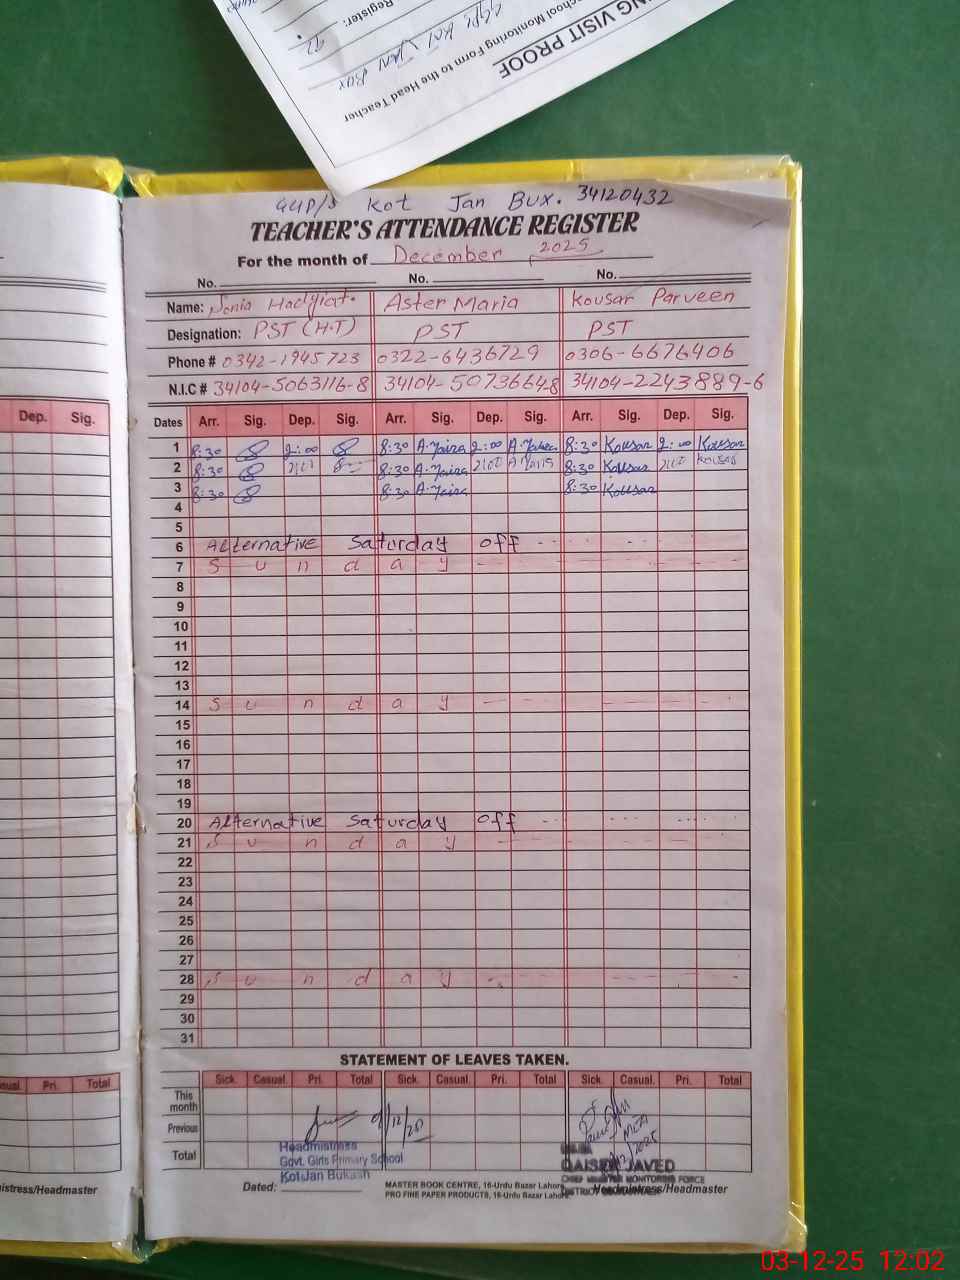 NG VISIT PROOF
School Monitoring Form to the Head Teacher
Register:
GGPS Kot Jan Bux
GGP/S Kot Jan Bux. 34120432
TEACHER'S ATTENDANCE REGISTER
For the month of December 2025
No. No. No.
Name: Sonia Hadyiat. Aster Maria Kousar Parveen
Designation: PST (H.T) PST PST
Phone # 0342-1945723 0322-6436729 0306-6676406
N.I.C # 34104-5063116-8 34104-50736648 34104-2243889-6
Dep. Sig. Dates Arr. Sig. Dep. Sig. Arr. Sig. Dep. Sig. Arr. Sig. Dep. Sig.
1 8:30 2:00 8:30 2:00 8:30 Kousar 2:00 Kousar
2 8:30 2:00 8:30 2:00 8:30 Kousar 2:00 Kousar
3 8:30 8:30 8:30 Kousar
4
5
6 Alternative Saturday off
7 S u n d a y
8
9
10
11
12
13
14 S u n d a y
15
16
17
18
19
20 Alternative Saturday off
21 S u n d a y
22
23
24
25
26
27
28 S u n d a y
29
30
31
STATEMENT OF LEAVES TAKEN.
Casual. Pri. Total Sick. Casual. Pri. Total Sick. Casual. Pri. Total Sick. Casual. Pri. Total
This month
Previous
Total
Headmistress
Govt. Girls Primary School
Kot Jan Buksh
QAISER JAVED
CHIEF MINISTER MONITORING FORCE
Dated:
MASTER BOOK CENTRE, 16-Urdu Bazar Lahore
PRO FINE PAPER PRODUCTS, 16-Urdu Bazar Lahore
Headmistress/Headmaster
mistress/Headmaster
03-12-25 12:02